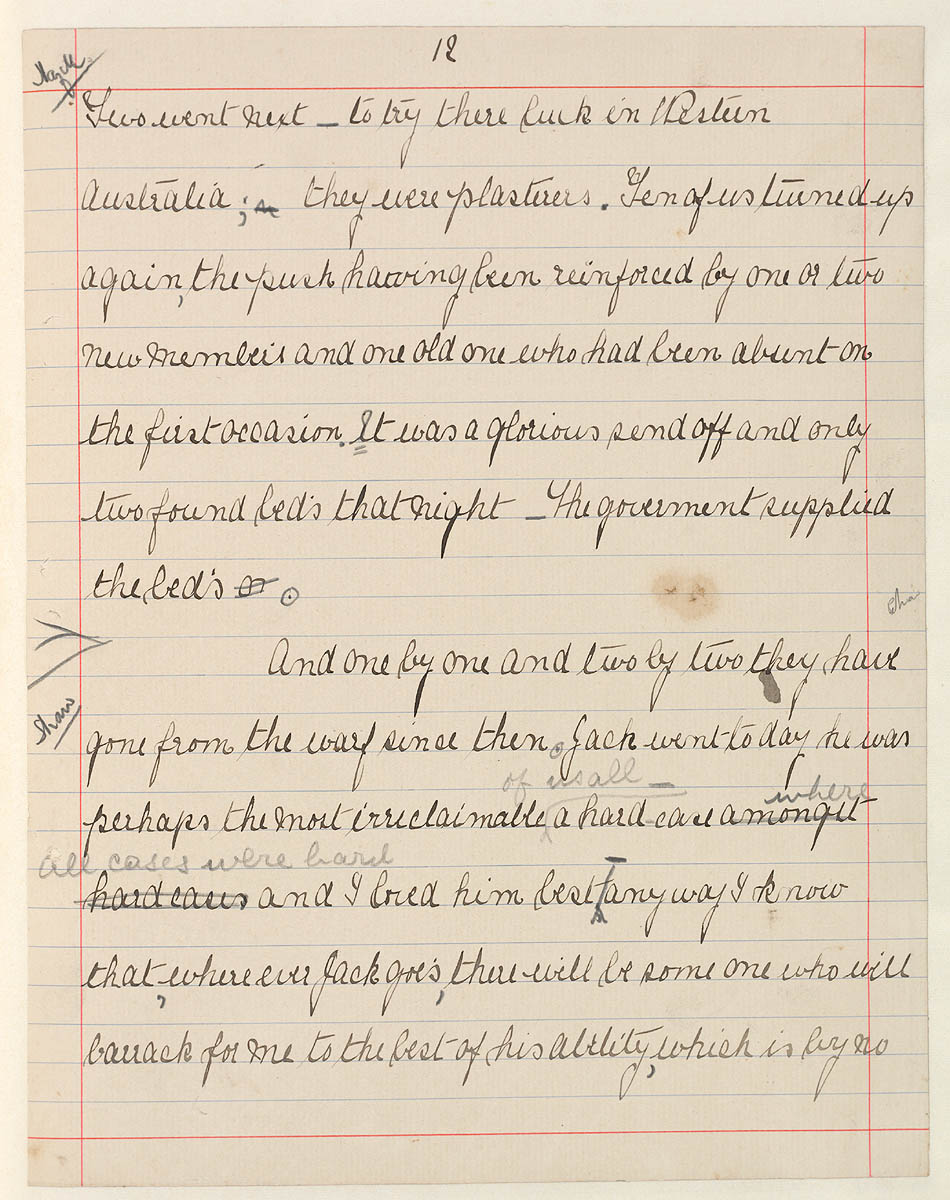 12
Two went next — to try there luck in Western
Australia; they were plasterers. Ten of us turned up
again, the push having been reinforced by one or two
new members and one old one who had been absent on
the first occasion. It was a glorious send off and only
two found bed's that night — The goverment supplied
the bed's.
And one by one and two by two they have
gone from the warf since then. Jack went to day he was
of us all —
perhaps the most irreclaimable, a hard case amongst
where
all cases were hard
hard cases and I loved him best, anyway I know
Shaw
that, where ever Jack goe's, there will be some one who will
barrack for me to the best of his ability, which is by no